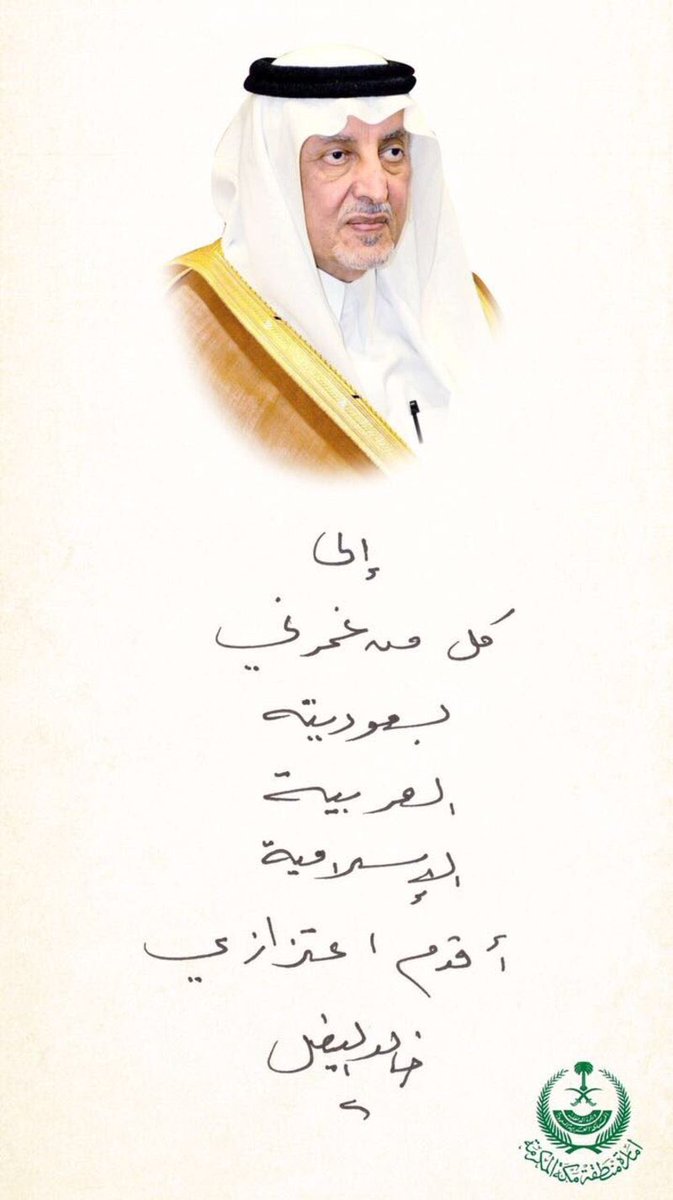 إلى
كل من غمرني
بسعوديته
العربية
الإسلامية
أقدم اعتزازي
خالد الفيصل
إمارة منطقة مكة المكرمة